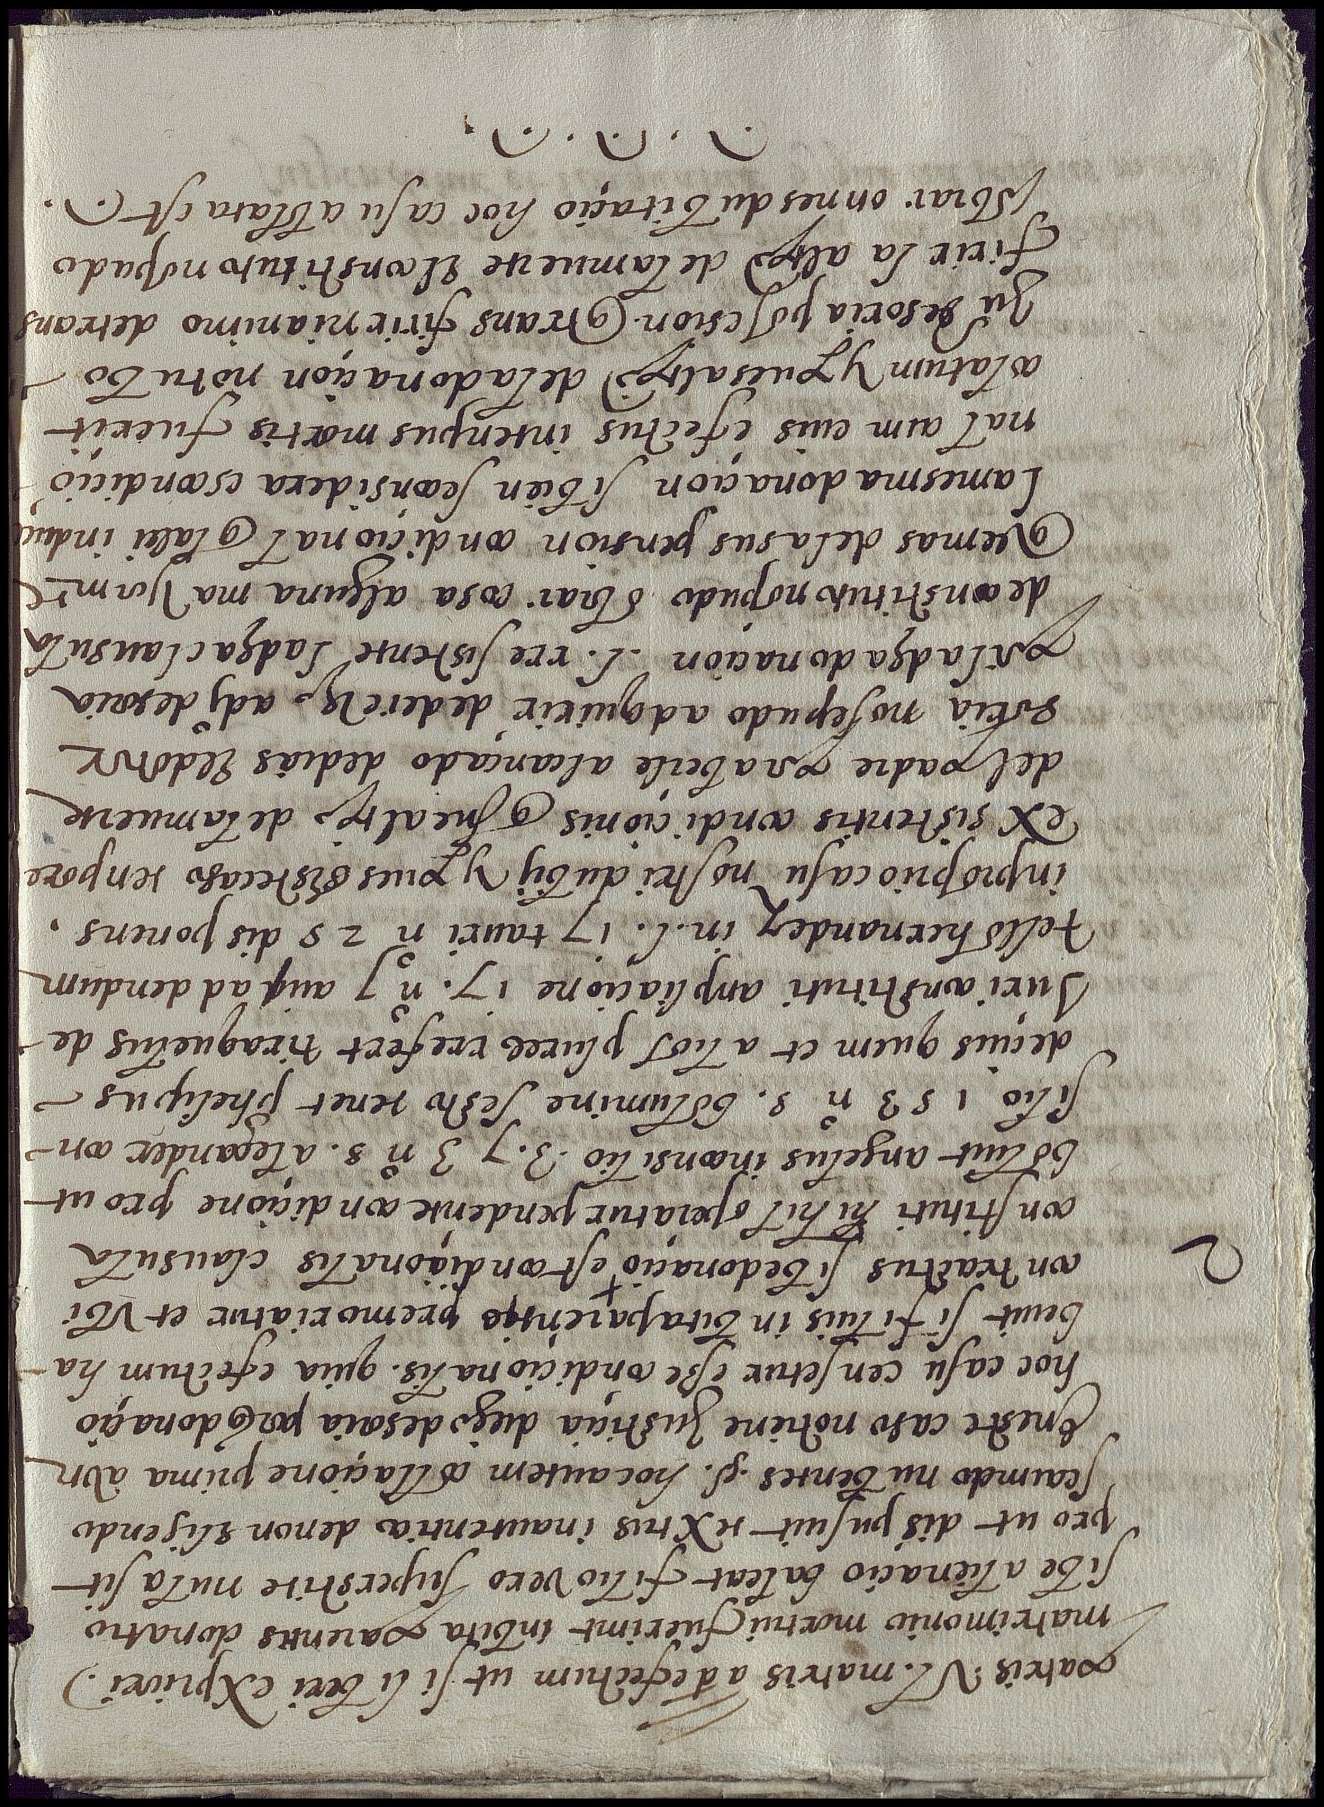 patris vl. matris ad efectum ut si liberi ex priori
matrimonio mortui fuerint in bita parentis donatio
sibe alienacio baleat filio vero superstite nula sit
pro ut dispusuit textus in autentica de non eligendo
secumdo nubentes §. hoc autem collacione prima aun
en este caso no tiene Justiçia diego de soria porq donaçio
hoc casu censetur esse condicionalis. quia efectum ha-
beuit si filius in bita parentis premoriatur et ubi
contractus sibe donaçio est condiçionalis clausula
constituti nihil operatur pendente condiçione prout
2
boluit angelus in consilio .3.73 nº 8. alexander con-
silio. 153 nº 8. bolumine sesto tenet phelipus
deçius quem et alios plures rrefert tiraquelus de
Juri constituti anpliacione 17. nº 7 addendum
tello hernandez in. l. 17 tauri n 28 disponens.
in propio casu nostri dubij y pues este caso tenpore
existentis condicionis q fue al tpo. de la muerte
del padre para berle alcançado de dias El
no se pudo adquirir derecho. a dº de soria
por la dha donaçion. l. rresistente la dha clausula
de constituto no pudo obrar cosa alguna mayormte
q demas de la suspension condiçional q tale induçe
La mesma donaçion si bien se considera es condiçio
nal cum eius efectus in tenpus mortis fuerit
colatum y pues al tpo de la donaçion no tubo
Juº de soria posesion q transfirir ni animo de trans
firir la al tpo de la muerte El constituto no pudo
obrar onnes dubitaçio hoc casu ablata est